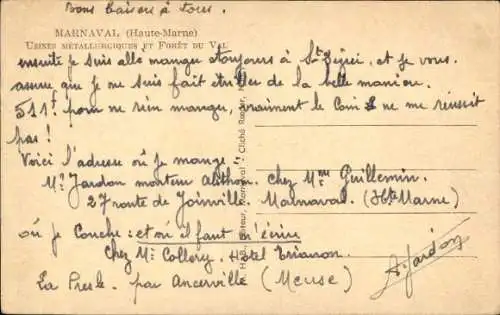 Bons baisers à tous.
MARNAVAL (Haute-Marne)
USINES MÉTALLURGIQUES ET FORÊT DU VAL
ensuite je suis allé manger toujours à St Dizier, et je vous
assure que je me suis fait étriller de la belle manière.
511f. pour ne rien manger, vraiment le Coin ne me réussit
pas !
Voici l'adresse où je mange
Mr Jardon monteur chez Mme Guillemin.
27 route de Joinville. Marnaval. (Hte Marne)
où je Couche: et où il faut m'écrire
chez Mr Collery. Hôtel Trianon.
La Presle. par Ancerville (Meuse)
A. Jardon
Editeur, Marnaval - Cliché Rœder,